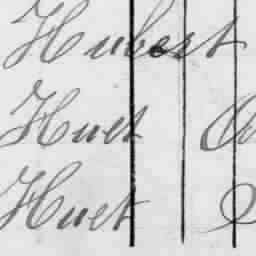 Hubert
Huet
Huet